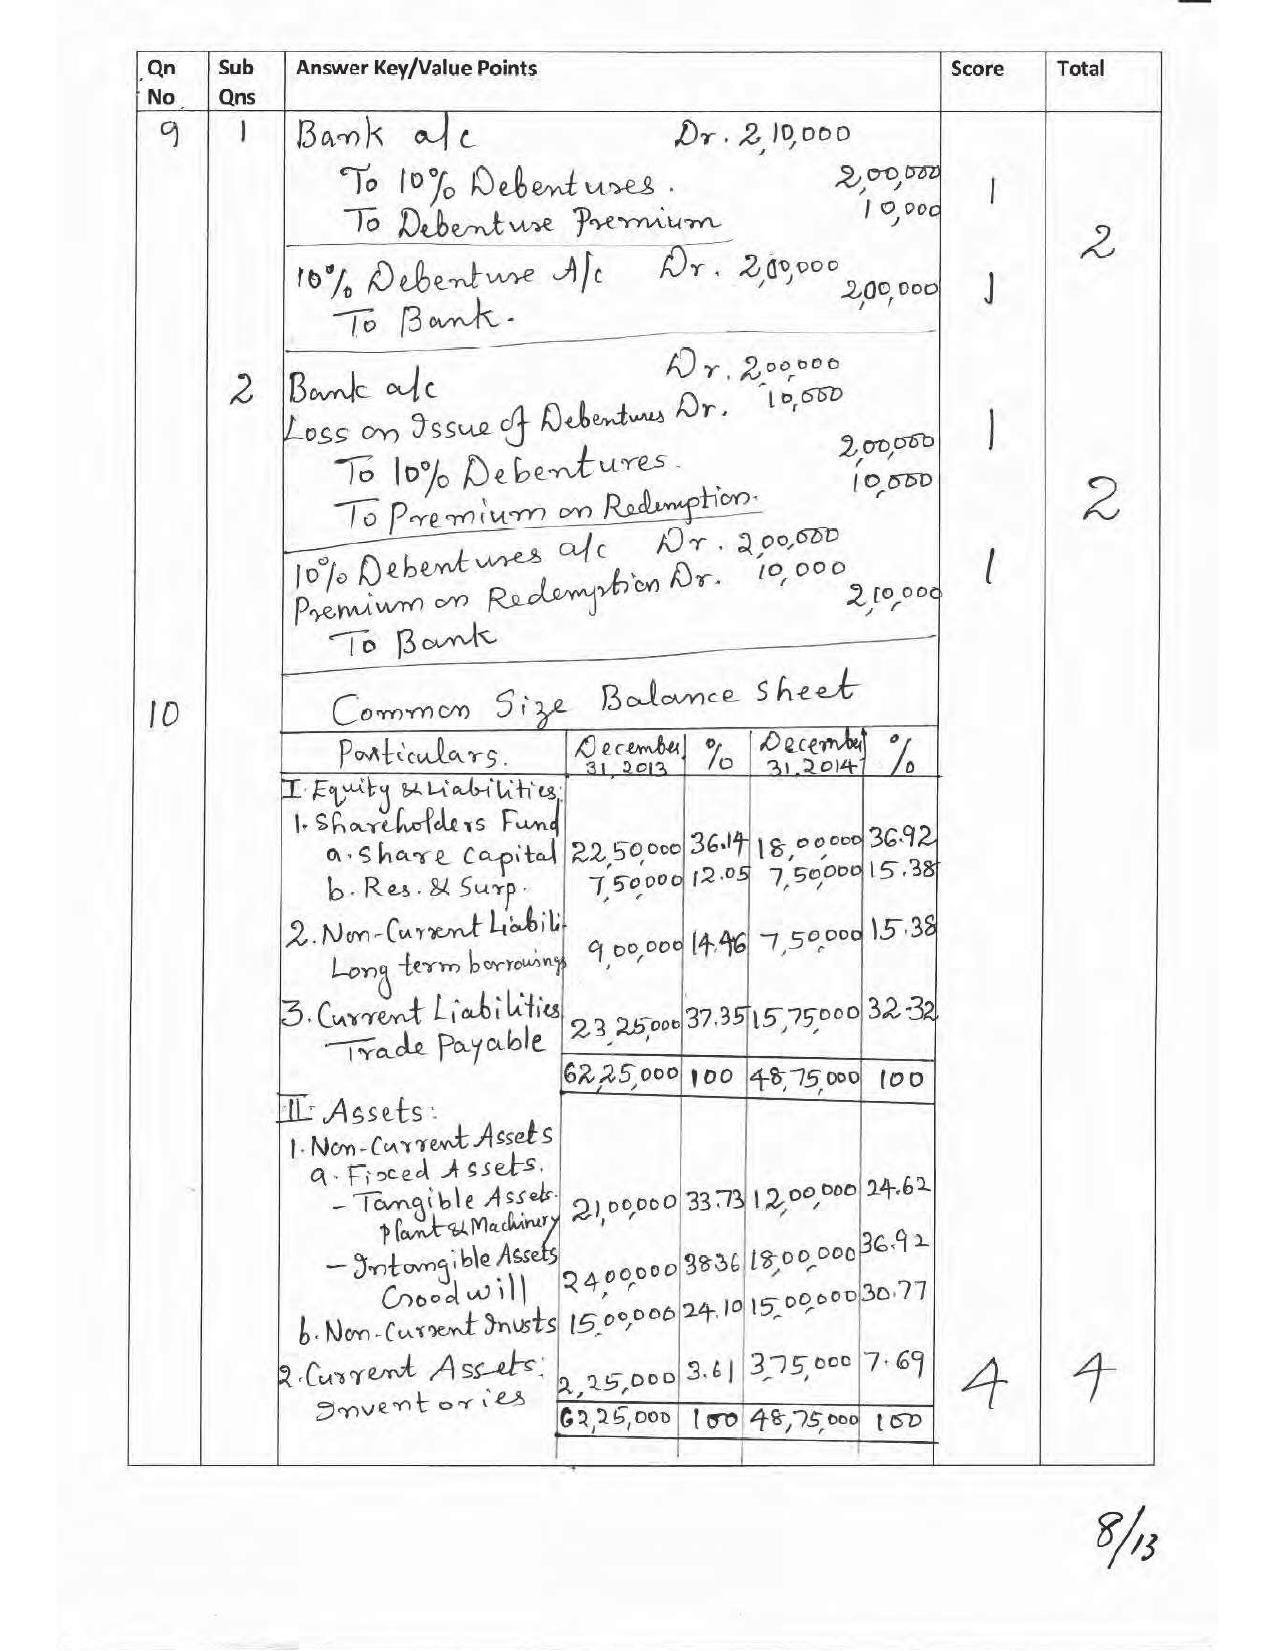 Qn No Sub Qns Answer Key/Value Points Score Total
9 1 Bank a/c Dr. 2,10,000
To 10% Debentures. 2,00,000 1
To Debenture Premium 10,000
2
10% Debenture A/c Dr. 2,00,000
To Bank. 2,00,000 1
2 Bank a/c Dr. 2,00,000
Loss on Issue of Debentures Dr. 10,000 1
To 10% Debentures. 2,00,000
To Premium on Redemption. 10,000
2
10% Debentures a/c Dr. 2,00,000
Premium on Redemption Dr. 10,000 1
To Bank 2,10,000
10 Common Size Balance Sheet
Particulars. December 31, 2013 % December 31, 2014 %
I. Equity & Liabilities:
1. Shareholders Fund
a. Share Capital 22,50,000 36.14 18,00,000 36.92
b. Res. & Surp. 7,50,000 12.05 7,50,000 15.38
2. Non-Current Liabili
Long term borrowings 9,00,000 14.46 7,50,000 15.38
3. Current Liabilities
Trade Payable 23,25,000 37.35 15,75,000 32.32
62,25,000 100 48,75,000 100
II. Assets:
1. Non-Current Assets
a. Fixed Assets.
- Tangible Assets.
Plant & Machinery 21,00,000 33.73 12,00,000 24.62
- Intangible Assets
Goodwill 24,00,000 38.36 18,00,000 36.92
b. Non-Current Invsts 15,00,000 24.10 15,00,000 30.77
2. Current Assets:
Inventories 2,25,000 3.61 3,75,000 7.69 4 4
62,25,000 100 48,75,000 100
8/13